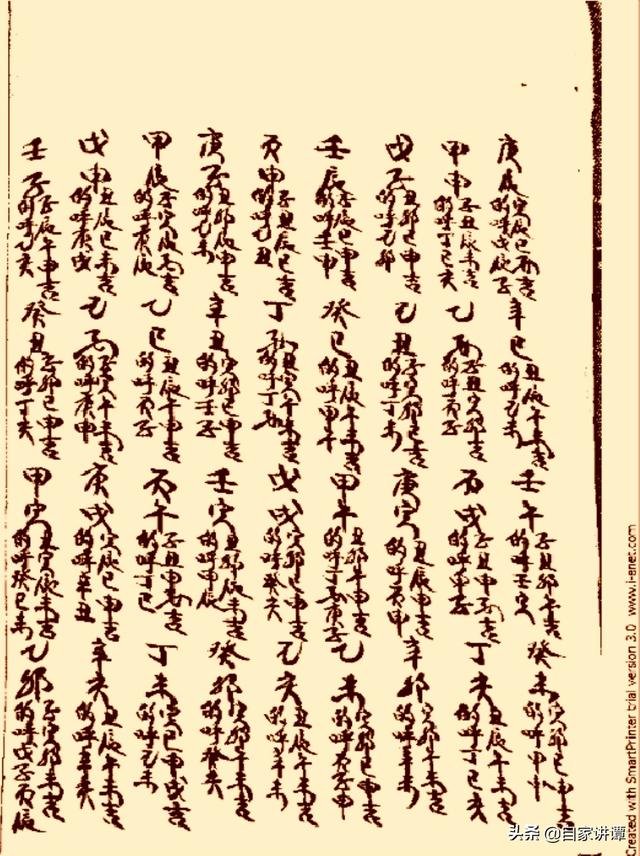 庚辰 寅辰巳酉吉 的呼戊辰子 辛巳 丑辰午未吉 的呼乙未 壬午 子丑卯午吉 的呼壬寅 癸未 寅卯巳申吉 的呼甲
甲申 子丑辰未吉 的呼丁巳亥 乙酉 子丑寅卯吉 的呼丙子 丙戌 子丑申酉吉 的呼甲子 丁亥 丑辰午未吉 的呼丁巳亥
戊子 丑卯巳申吉 的呼乙卯 己丑 子寅卯巳吉 的呼丁未 庚寅 丑辰未吉 的呼丙申 辛卯 寅卯午未吉 的呼辛未
壬辰 辰巳申吉 的呼壬申 癸巳 丑辰午未吉 的呼甲午 甲午 丑卯午申吉 的呼丁酉庚子 乙未 寅卯巳申吉 的呼丙子申
丙申 子丑辰巳吉 的呼乙丑 丁酉 丑寅午未吉 的呼丁酉 戊戌 寅卯巳申吉 的呼癸亥 己亥 丑辰午未吉 的呼辛未
庚子 丑卯申吉 的呼乙未 辛丑 寅卯巳申吉 的呼壬子 壬寅 丑卯辰未吉 的呼甲辰 癸卯 寅卯午未吉 的呼癸亥
甲辰 寅辰酉吉 的呼庚辰 乙巳 丑辰午申吉 的呼丙子 丙午 子丑申酉吉 的呼丁巳 丁未 寅巳申戌吉 的呼乙未
戊申 丑辰巳未吉 的呼庚戌 己酉 子寅午未吉 的呼庚申 庚戌 寅辰巳申吉 的呼辛丑 辛亥 丑辰午未吉 的呼辛亥
壬子 子辰午申吉 的呼乙亥 癸丑 子卯巳申吉 的呼丁亥 甲寅 丑寅辰未吉 的呼癸巳未 乙卯 子寅卯未吉 的呼戊子丙辰
Created with SmartPrinter trial version 3.0 www.i-enet.com
头条 @自家讲谭